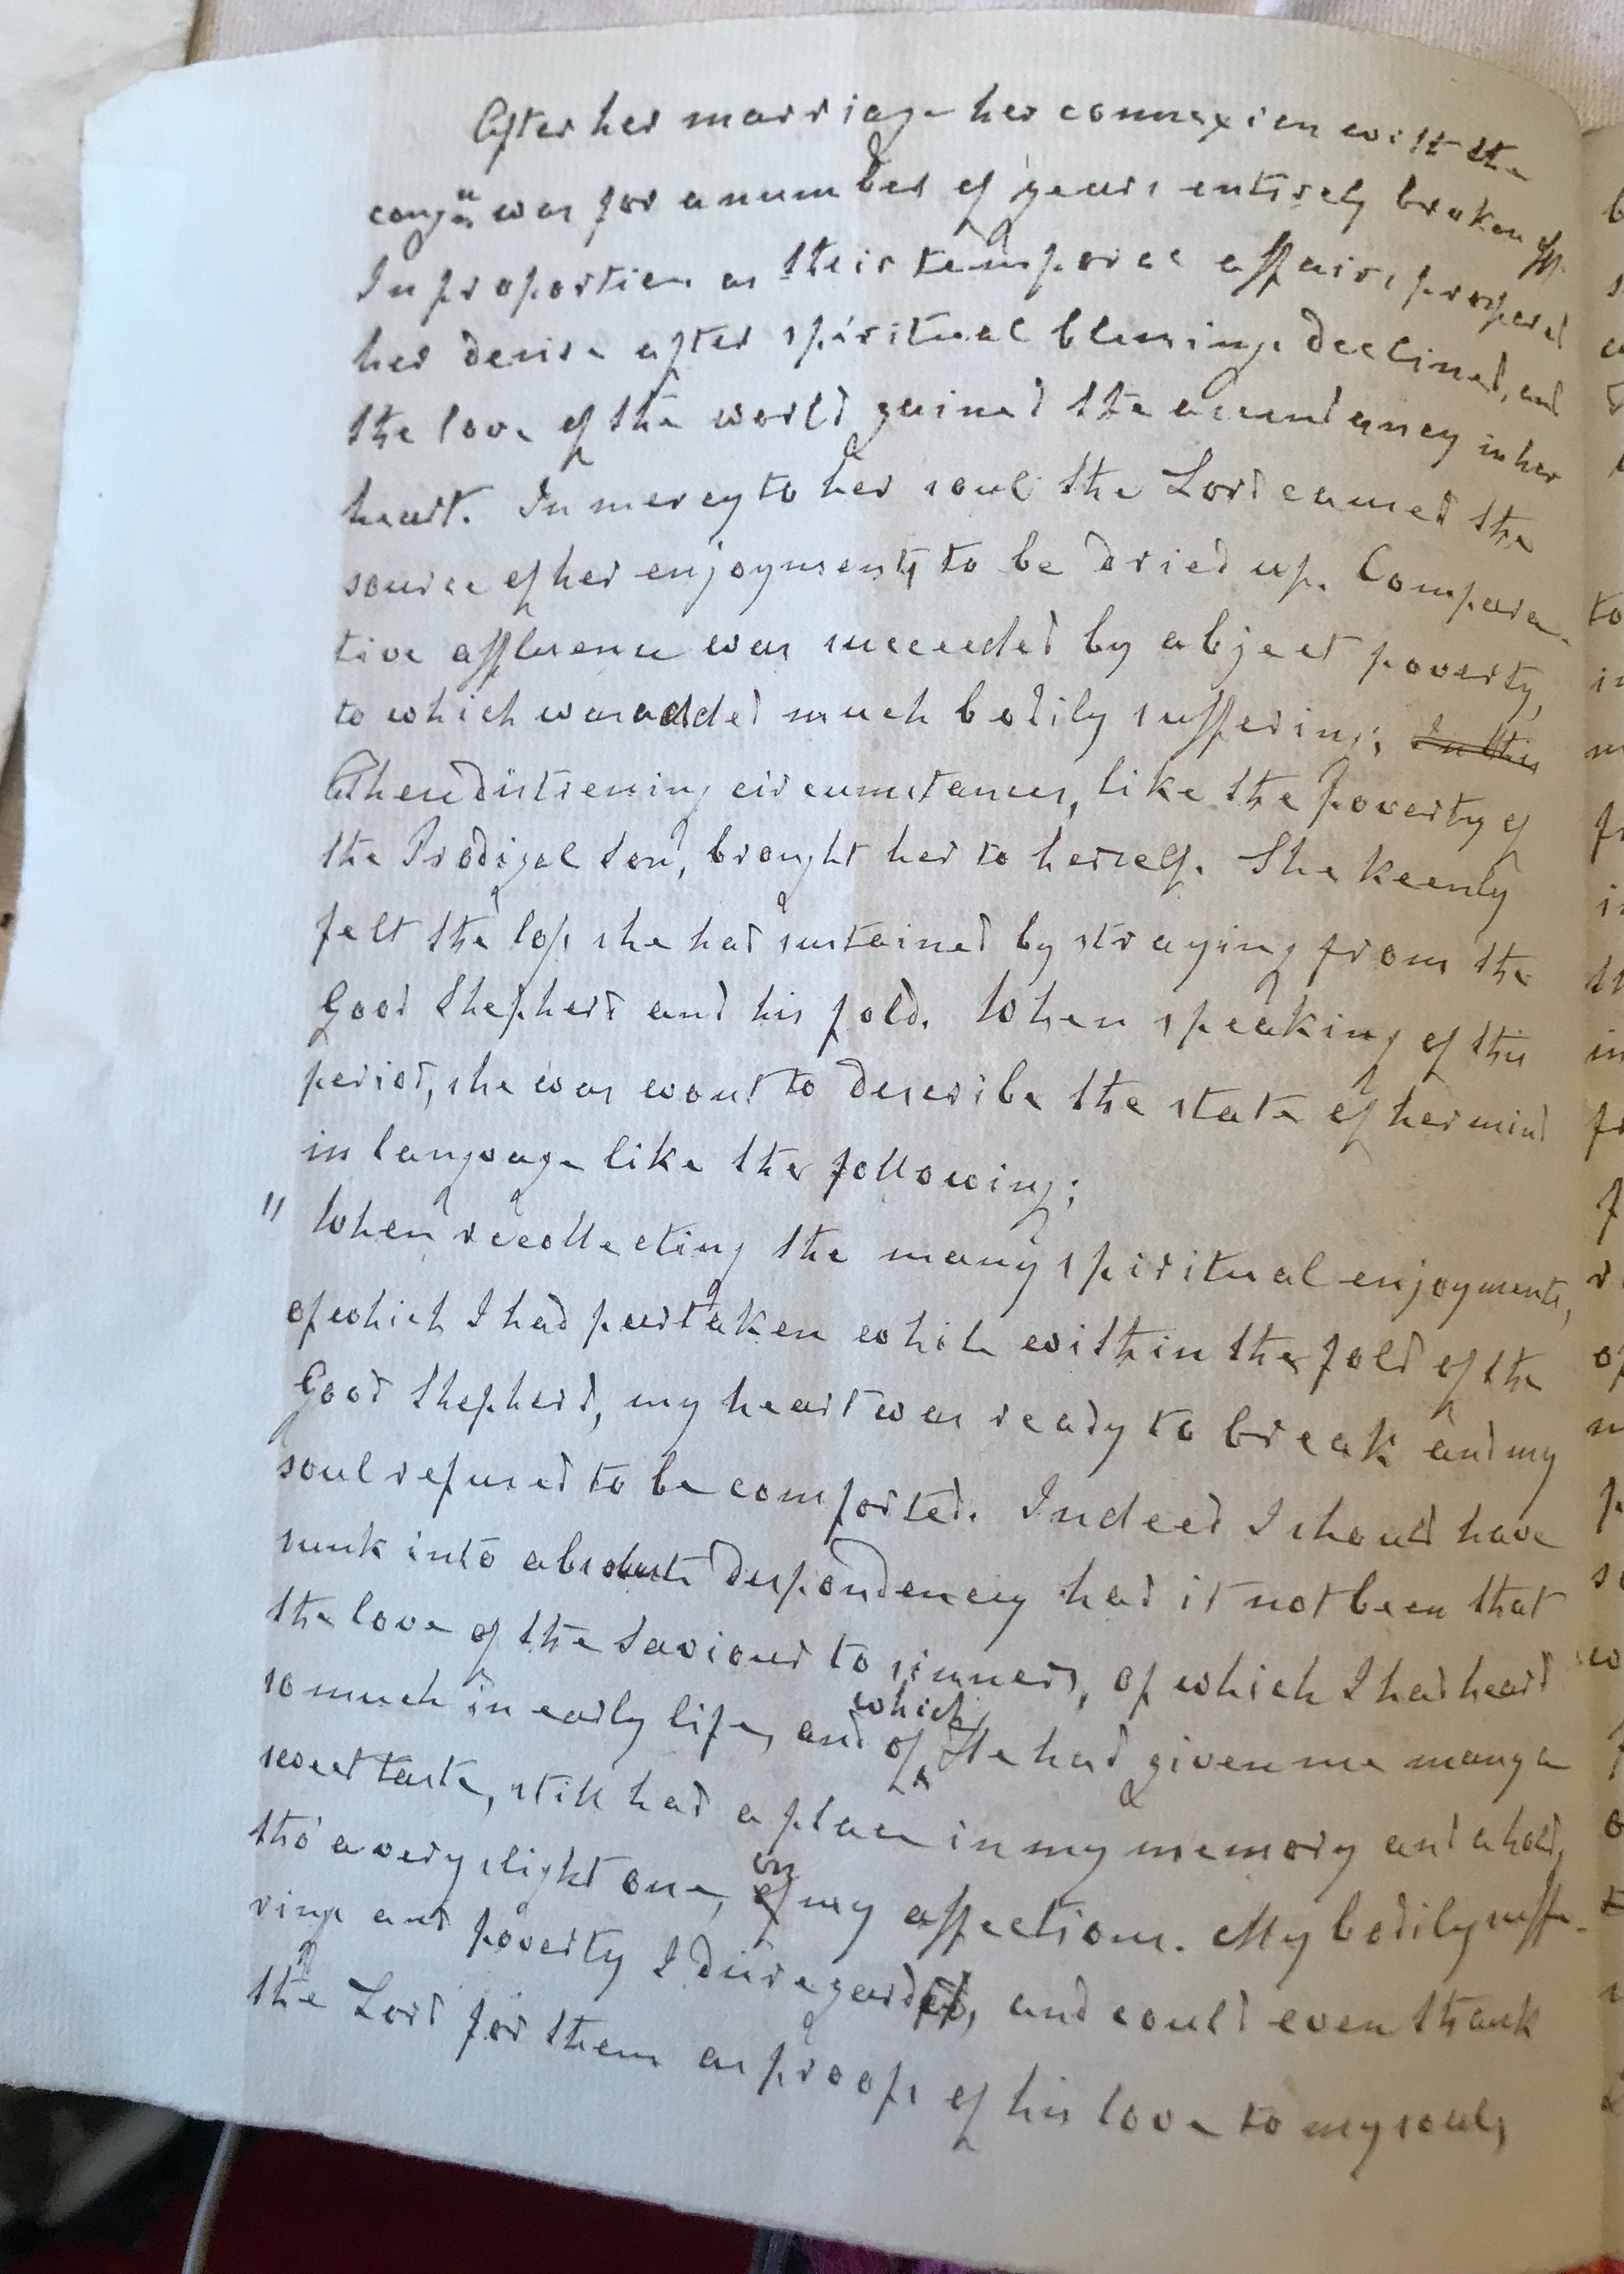 After her marriage her connexion with the
congn was for a number of years entirely broken off.
In proportion as their temporal affairs prospered
her desire after spiritual blessings declined, and
the love of the world gained the ascendancy in her
heart. In mercy to her soul the Lord caused the
source of her enjoyments to be dried up. Compara-
tive affluence was succeeded by abject poverty,
to which was added much bodily suffering; In this
These distressing circumstances, like the poverty of
the Prodigal Son, brought her to herself. She keenly
felt the loss she had sustained by straying from the
Good Shepherd and his fold. When speaking of this
period, she was wont to describe the state of her mind
in language like the following;
" When recollecting the many spiritual enjoyments,
of which I had partaken while within the fold of the
Good Shepherd, my heart was ready to break and my
soul refused to be comforted. Indeed I should have
sunk into absolute despondency had it not been that
the love of the Saviour to sinners, of which I had heard
so much in early life, and of which He had given me many a
sweet taste, still had a place in my memory and a hold,
tho' a very slight one, on my affections. My bodily suffe-
rings and poverty I disregarded, and could even thank
the Lord for them as proofs of his love to my soul,